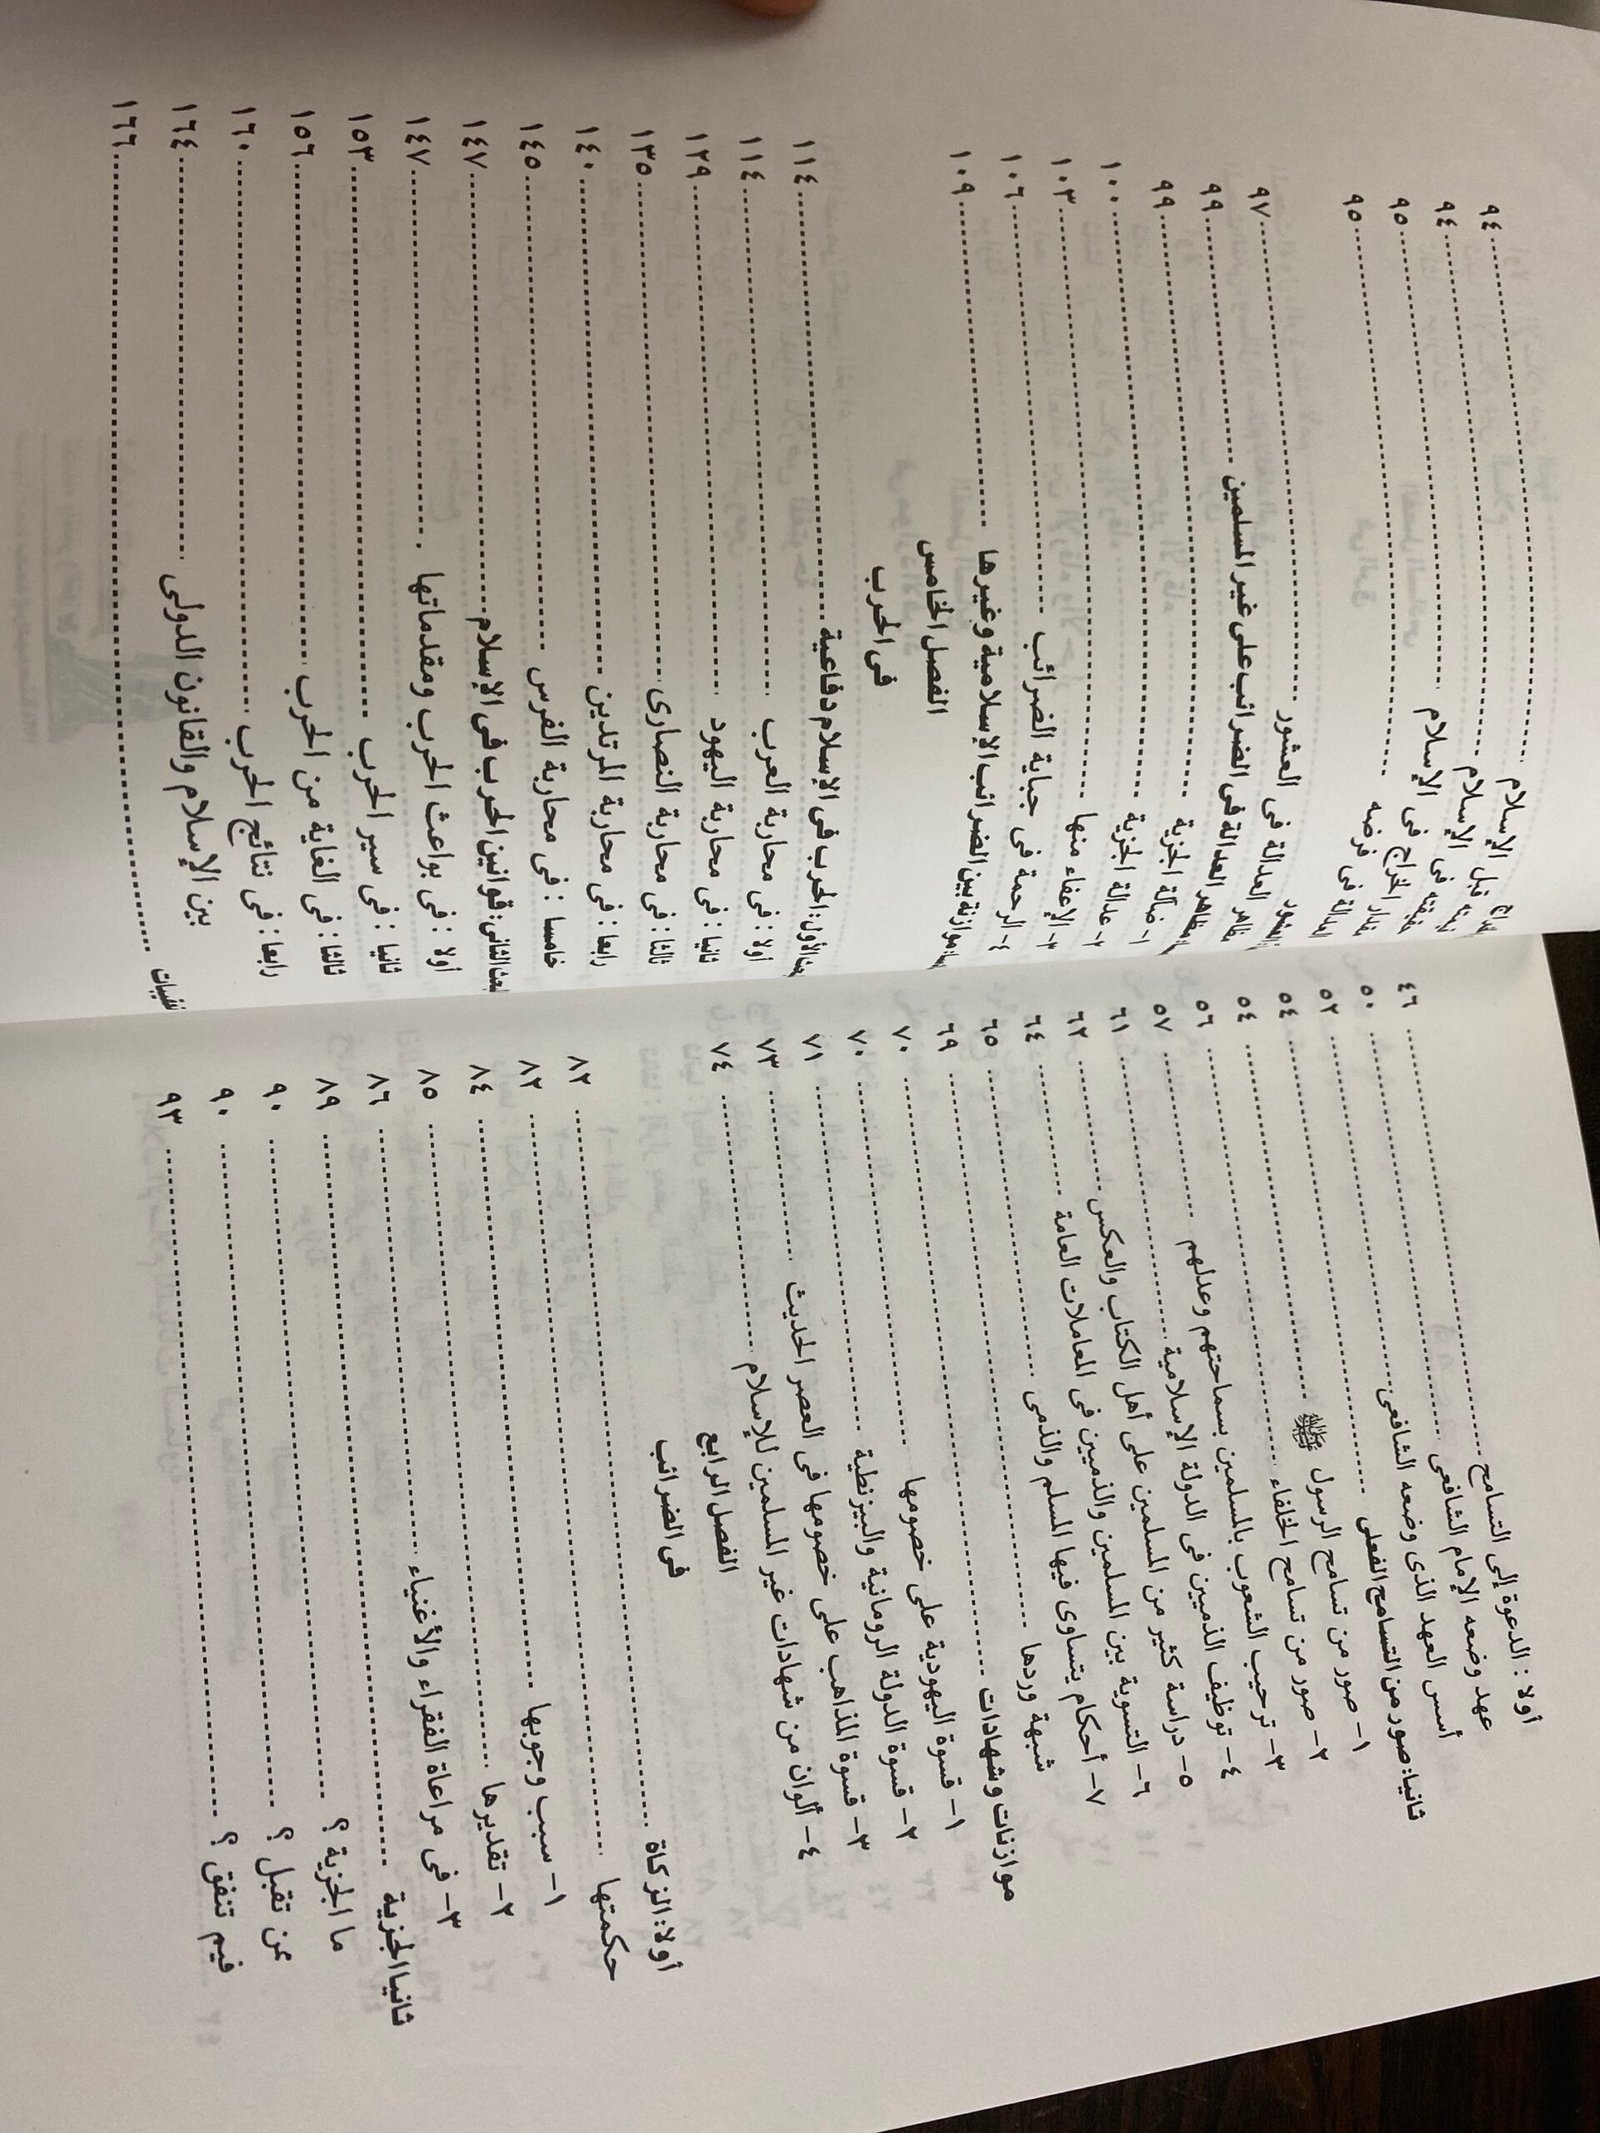 أولا : الدعوة إلى التسامح ٤٦
عهد وضعه الإمام الشافعى ٥٠
أسس العهد الذى وضعه الشافعى ٥٢
ثانيا: صور من التسامح الفعلى ٥٤
١- صور من تسامح الرسول ﷺ ٥٤
٢- صور من تسامح الخلفاء ٥٦
٣- ترحيب الشعوب بالمسلمين بسماحتهم وعدلهم ٥٧
٤- توظيف الذميين فى الدولة الإسلامية ٦١
٥- دراسة كثير من المسلمين على أهل الكتاب والعكس ٦٢
٦- التسوية بين المسلمين والذميين فى المعاملات العامة ٦٤
٧- أحكام يتساوى فيها المسلم والذمى ٦٥
شبهة وردها ٦٩
موازنات وشهادات ٧٠
١- قسوة اليهودية على خصومها ٧٠
٢- قسوة الدولة الرومانية والبيزنطية ٧١
٣- قسوة المذاهب على خصومها فى العصر الحديث ٧٣
٤- ألوان من شهادات غير المسلمين للإسلام ٧٤
الفصل الرابع
فى الضرائب
أولا: الزكاة ٨٢
حكمتها ٨٢
١- سبب وجوبها ٨٤
٢- تقديرها ٨٥
٣- فى مراعاة الفقراء والأغنياء ٨٦
ثانيا الجزية ٨٩
ما الجزية ؟ ٩٠
ممن تقبل ؟ ٩٠
فيم تنفق ؟ ٩٣
قبل الإسلام ٩٤
فى الإسلام ٩٤
الخراج فى الإسلام ٩٥
فى فرضه ٩٥
العدالة فى العشور ٩٧
مظاهر العدالة فى الضرائب على غير المسلمين ٩٩
١- ضآلة الجزية ٩٩
٢- عدالة الجزية ١٠٠
٣- الإعفاء منها ١٠٣
٤- الرحمة فى جباية الضرائب ١٠٦
موازنة بين الضرائب الإسلامية وغيرها ١٠٩
الفصل الخامس
فى الحرب
الأول: الحرب فى الإسلام دفاعية ١١٤
أولا : فى محاربة العرب ١١٤
ثانيا : فى محاربة اليهود ١٢٩
ثالثا : فى محاربة النصارى ١٣٥
رابعا : فى محاربة المرتدين ١٤٠
خامسا : فى محاربة الفرس ١٤٥
الثانى: قوانين الحرب فى الإسلام ١٤٧
أولا : فى بواعث الحرب ومقدماتها ١٤٧
ثانيا : فى سير الحرب ١٥٣
ثالثا : فى الغاية من الحرب ١٥٦
رابعا : فى نتائج الحرب ١٦٠
بين الإسلام والقانون الدولى ١٦٤
١٦٦